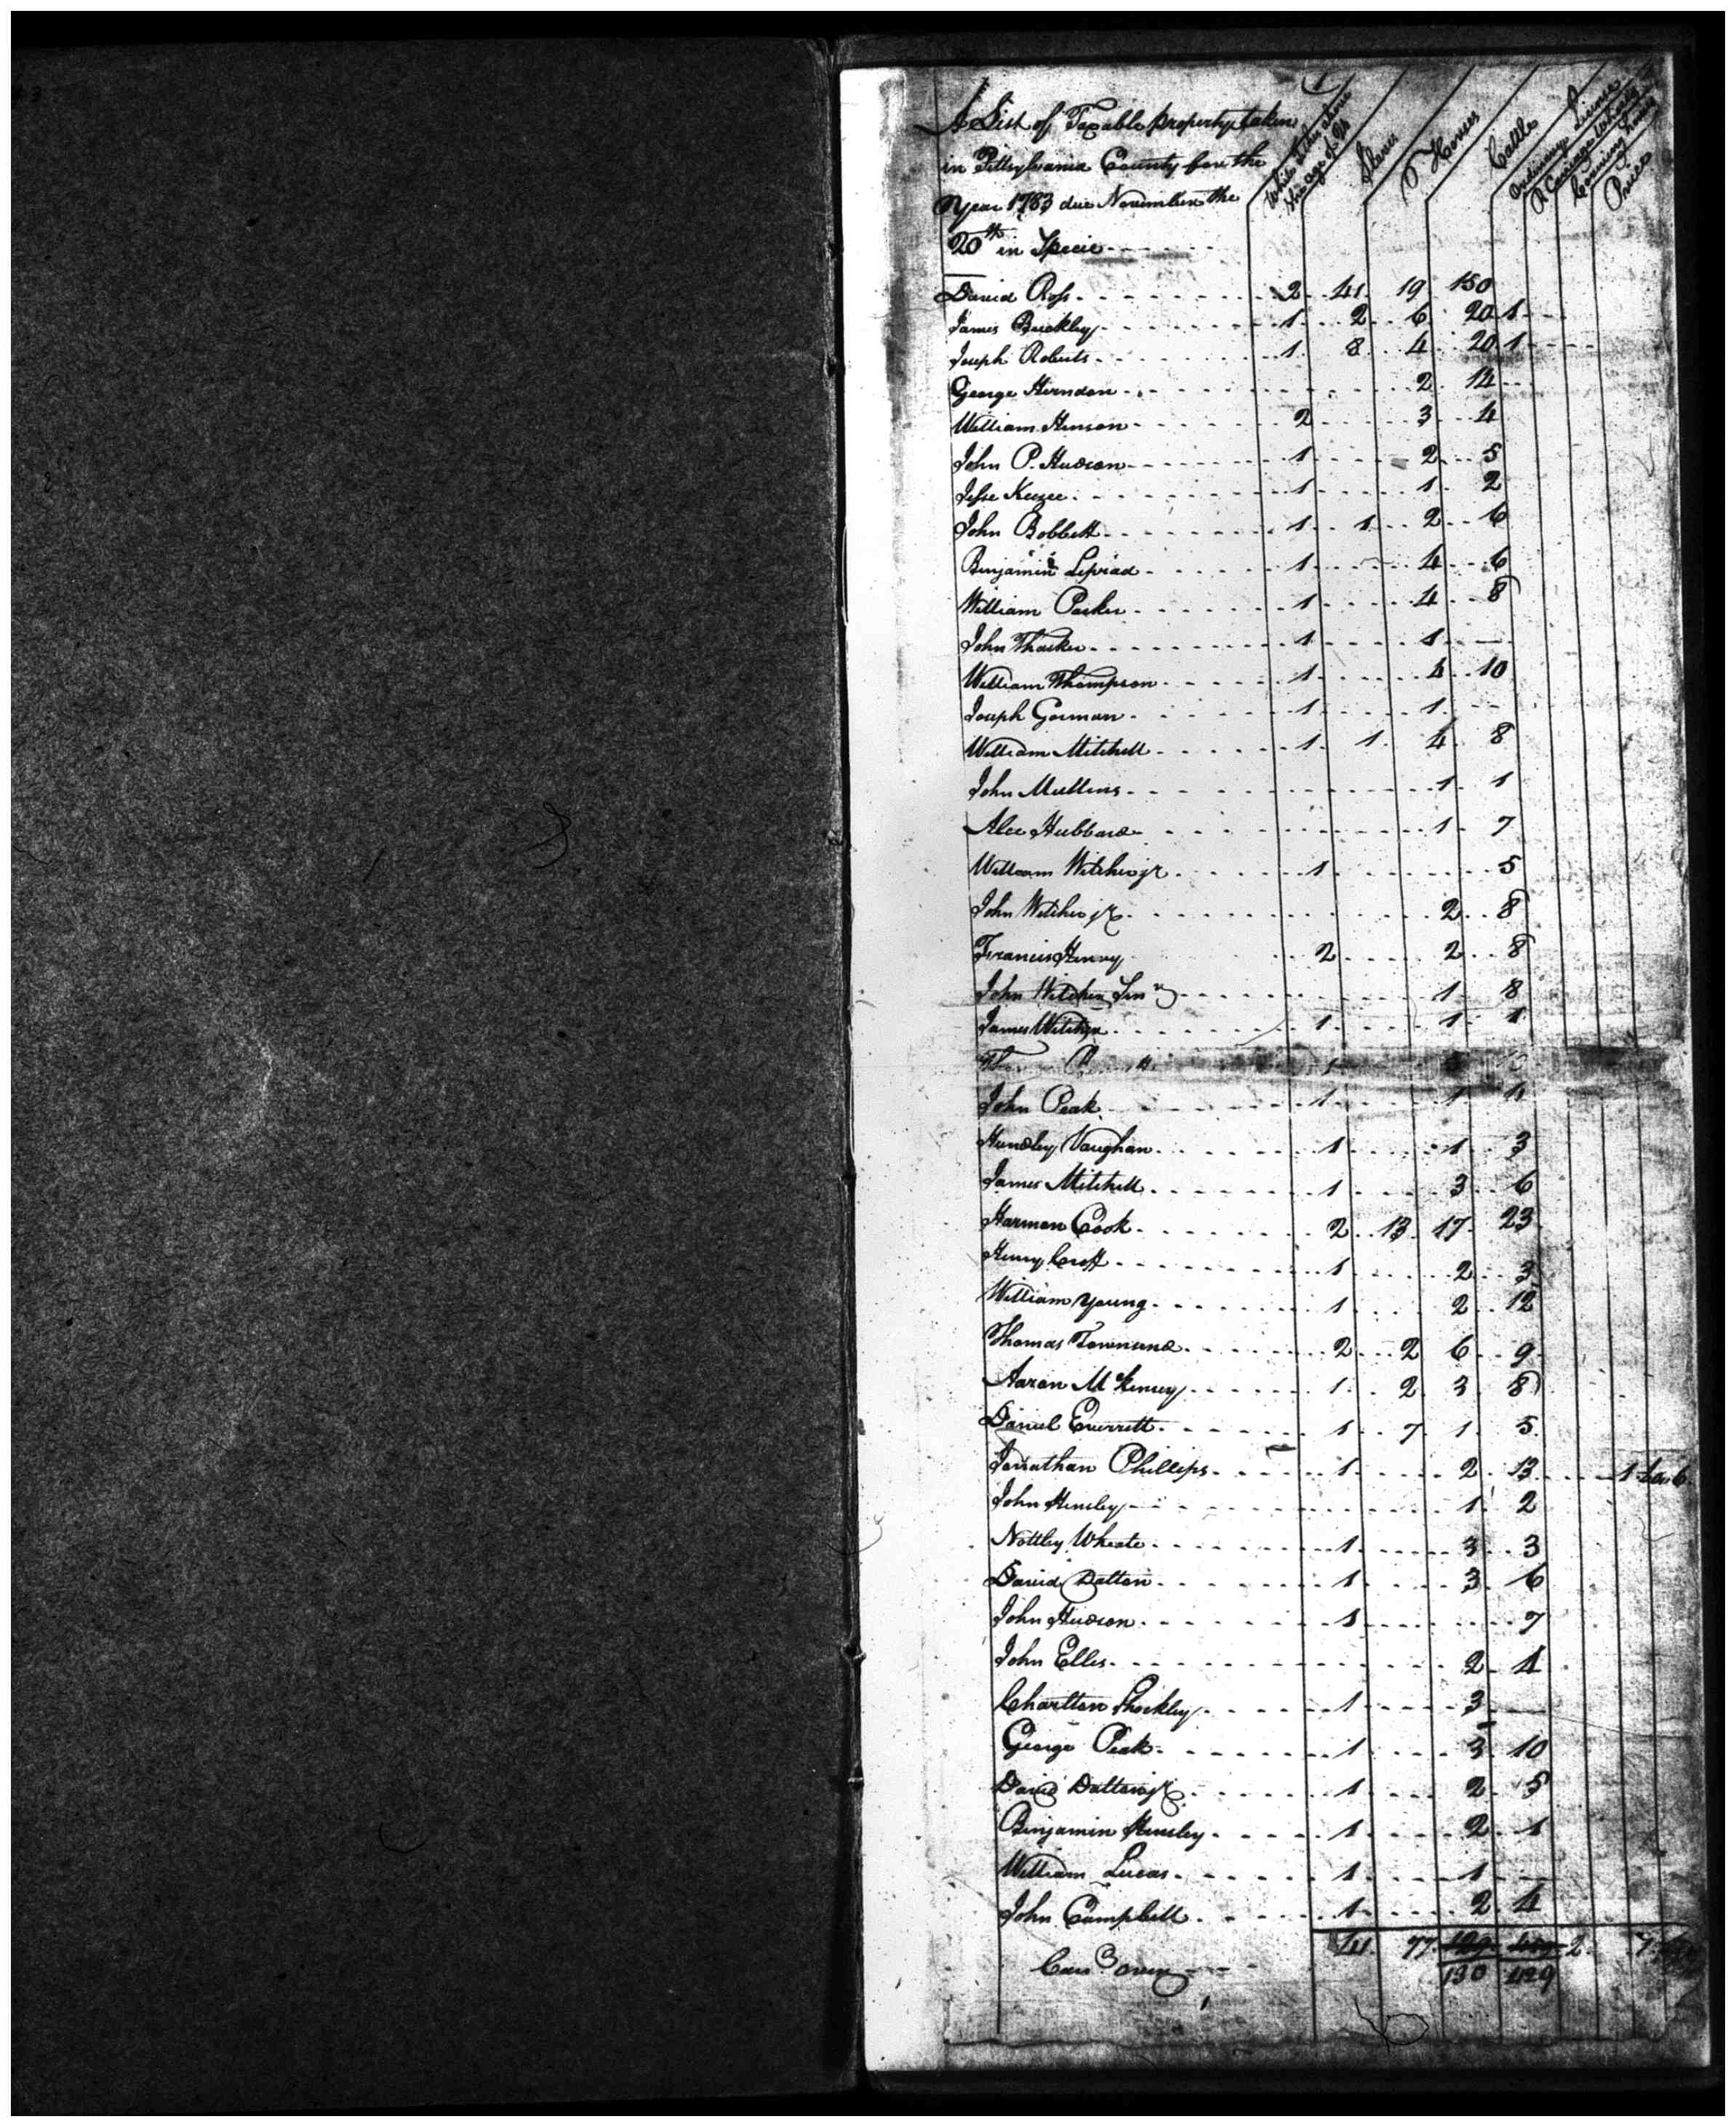 A List of Taxable property taken
in Pittsylvania County for the
Year 1783 due November the
20th in Specie
White tithes above the age of
Slaves
Horses
Cattle
Ordinary License
Carriage Wheels
Price
David Ross 2 41 19 150
James Buckley 1 2 6 20 1
Joseph Roberts 1 8 4 20 1
George Herndon 2 14
William Henson 2 3 4
John P. Hudson 1 2 5
Jesse Keezee 1 1 2
John Bobbett 1 1 2 6
Benjamin Leprad 1 4 6
William Parker 1 4 8
John Thacker 1 1 —
William Thompson 1 4 10
Joseph Gorman 1 1
William Mitchell 1 1 4 8
John Mullins 1 1
Alec Hubbard 1 7
William Witcher jr 1 5
John Witcher jr 2 8
Francis Henry 2 2 8
John Witcher Senr 1 8
James Witcher 1 1 1
John Peak 1 1
Hundley Vaughan 1 1 3
James Mitchell 1 3 6
Harmon Cook 2 13 17 23
Henry Croft 1 2 3
William Young 1 2 12
Thomas Townsend 2 2 6 9
Aaron McKensey 1 2 3 8
Daniel Everrett 1 7 1 5
Jonathan Phillips 1 2 13 1
John Hensley 1 2
Nottley Wheate 1 3 3
David Dalton 1 3 6
John Hudson 1 7
John Ellis 2 4
Charlton Shockley 1 3
George Peak 3 10
David Dalton jr 1 2 5
Benjamin Hensley 1 2 1
William Lucas 1 1
John Campbell 1 2 4
41 77 129 2
Card over 130 429